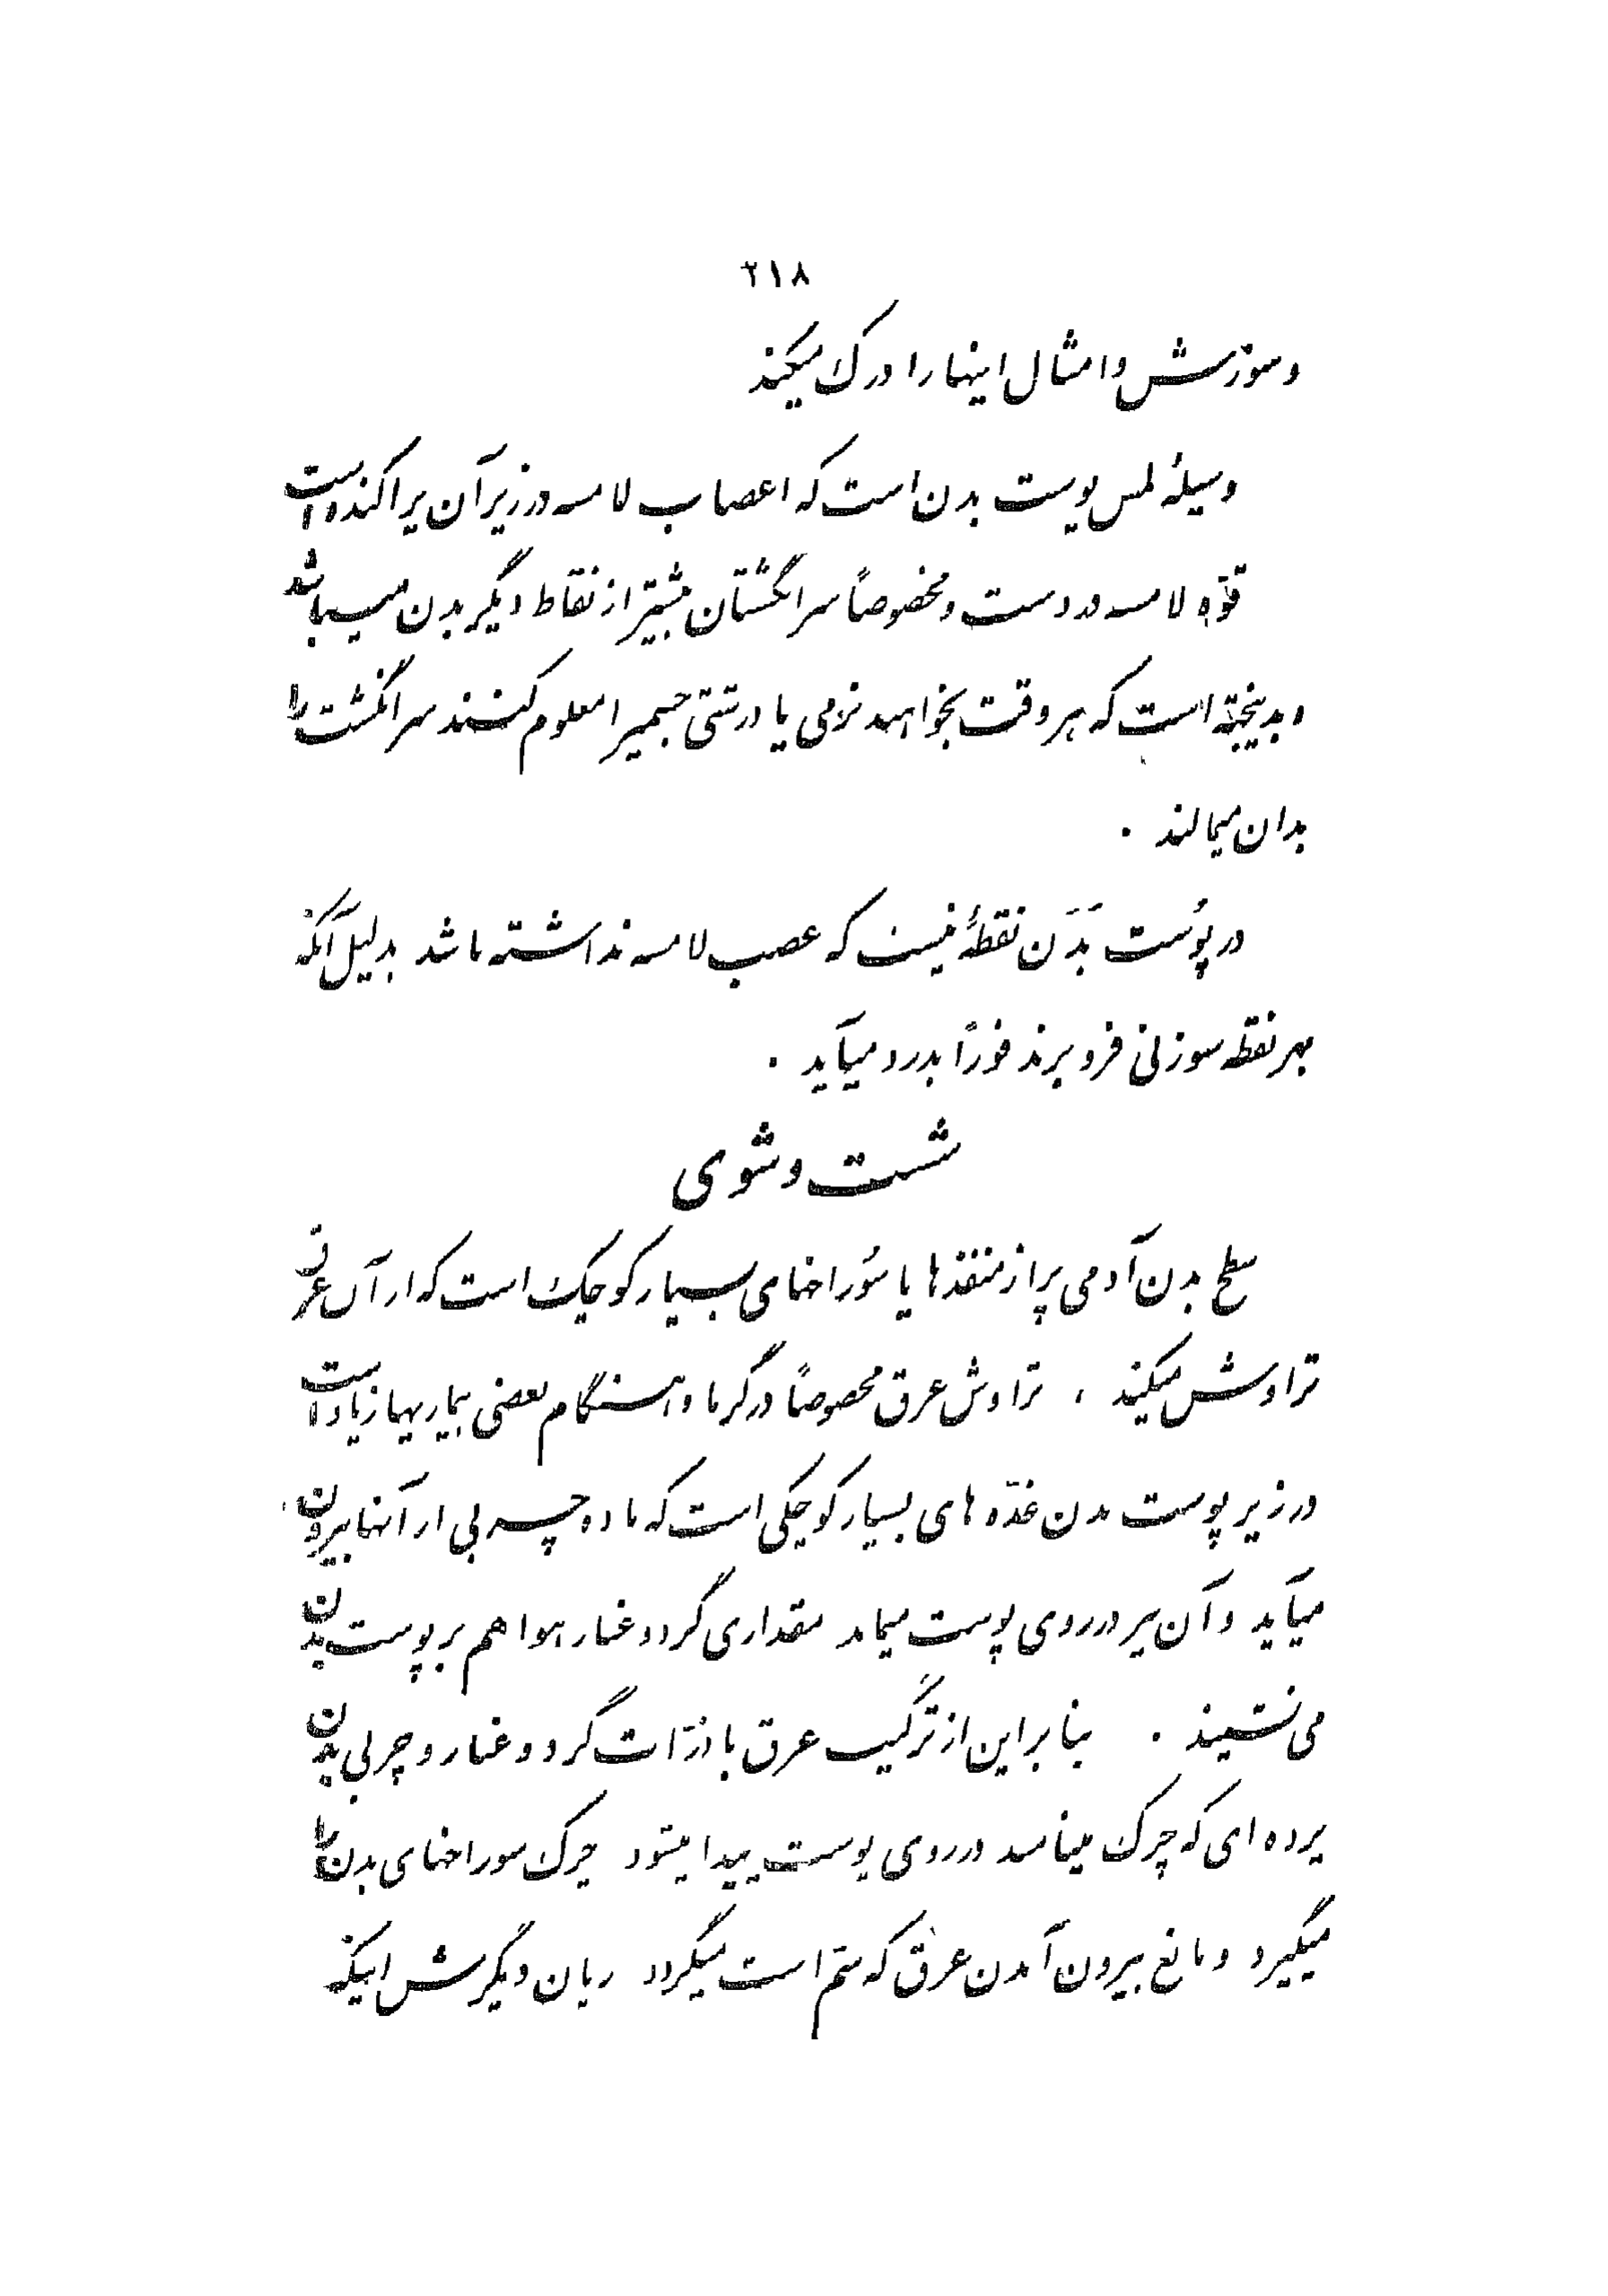 ۲۱۸
و سوزش و امثال اینها را درک میکنند
وسیلهٔ لمس پوست بدن است که اعصاب لامسه در زیر آن پراکنده است
قوّه لامسه در دست و مخصوصاً سر انگشتان بیشتر از نقاط دیگر بدن میباشد
و بدینجهة است که هر وقت بخواهند نرمی یا درشتی جسمیرا معلوم کنند سر انگشت را
بدان میمالند .
در پوُست بَدَن نقطهٔ نیست که عصب لامسه نداشته باشد بدلیل آنکه
بهر نقطه سوزنی فرو برند فوراً بدرد میآید .
شست و شوی
سطح بدن آدمی پر از منفذها یا سوُراخهای بسیار کوچک است که از آن عرق
تراوش میکند ، تراوش عرق مخصوصاً در گرما و هنگام بعضی بیماریها زیاد است
در زیر پوست بدن غدّه های بسیار کوچکی است که ماده چربی از آنها بیرون
میآید و آن نیز در روی پوست میماند مقداری گرد و غبار هوا هم بر پوست بدن
می نشیند . بنا بر این از ترکیب عرق با ذرّات گرد و غبار و چربی بدن
پرده ای که چرک مینامند در روی پوست پیدا میشود چرک سوراخهای بدن را
میگیرد و مانع بیرون آمدن عرق که سمّ است میگردد زیان دیگرش اینکه